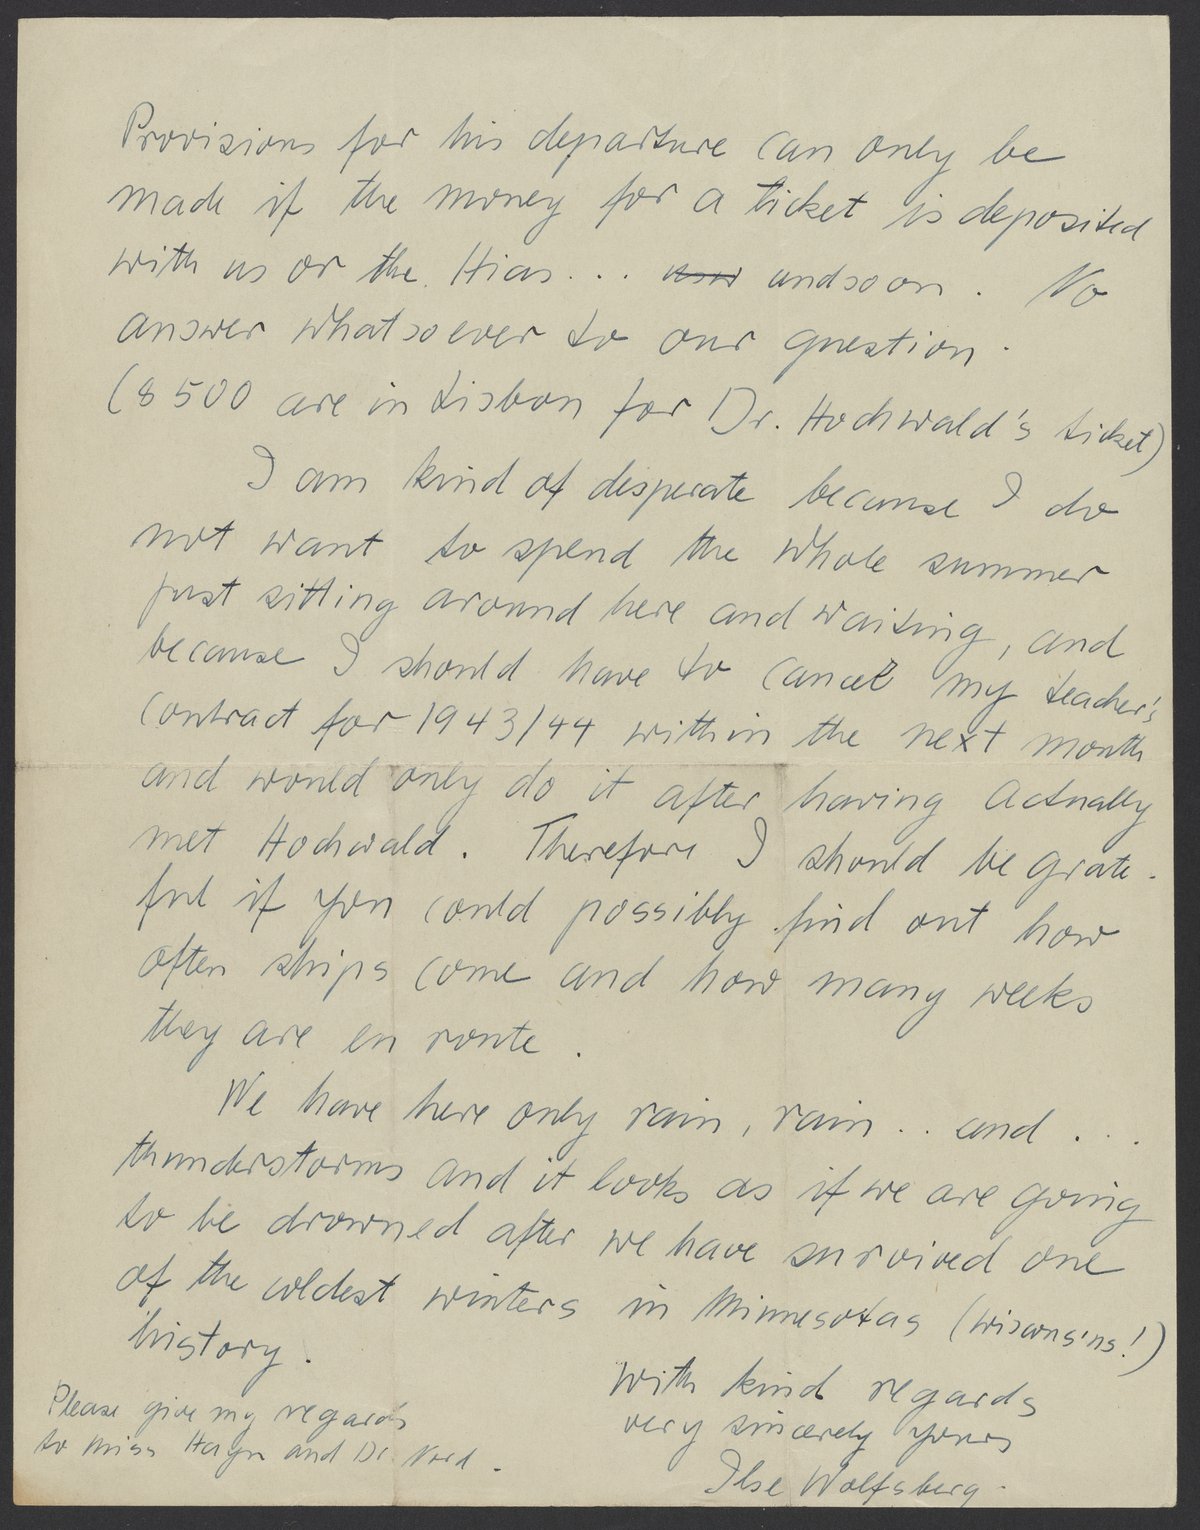 Provisions for his departure can only be
made if the money for a ticket is deposited
with us or the Hias... andsoon. No
answer whatsoever to our question.
($ 500 are in Lisbon for Dr. Hochwald's ticket)
I am kind of desperate because I do
not want to spend the whole summer
just sitting around here and waiting, and
because I should have to cancel my teacher's
contract for 1943/44 within the next month
and would only do it after having actually
met Hochwald. Therefore I should be grate-
ful if you could possibly find out how
often ships come and how many weeks
they are en route.
We have here only rain, rain.. and...
thunderstorms and it looks as if we are going
to be drowned after we have survived one
of the coldest winters in Minnesotas (Wisconsins!)
history.
With kind regards
very sincerely yours
Ilse Wolfsberg.
Please give my regards
to Miss Hagn and Dr. Nord.